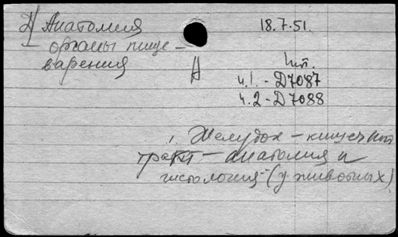 2) Анатомия
органы пище-
варения
18.7.51.
А
ч.1. - D7087
ч.2 - D7088
1. Желудок - кишечный
тракт - анатомия и
гистология - (у животных)